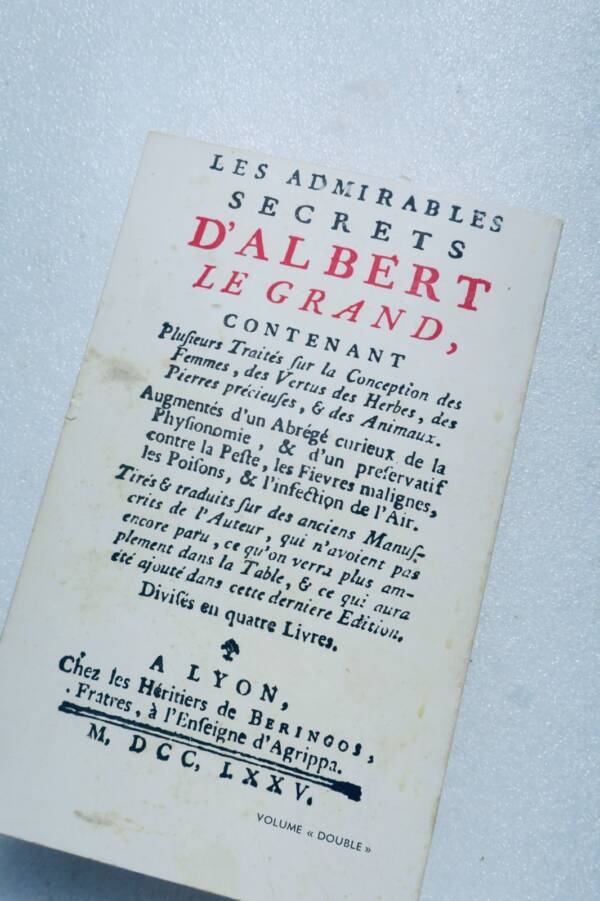 LES ADMIRABLES
SECRETS
D'ALBERT
LE GRAND,
CONTENANT
Pluſieurs Traités ſur la Conception des
Femmes, des Vertus des Herbes, des
Pierres précieuſes, & des Animaux.
Augmentés d'un Abrégé curieux de la
Phyſionomie, & d'un preſervatif
contre la Peſte, les Fievres malignes,
les Poiſons, & l'infection de l'Air.
Tirés & traduits ſur des anciens Manuſ-
crits de l'Auteur, qui n'avoient pas
encore paru, ce qu'on verra plus am-
plement dans la Table, & ce qui aura
été ajouté dans cette derniere Edition.
Diviſés en quatre Livres.
A LYON,
Chez les Héritiers de BERINGOS,
Fratres, à l'Enſeigne d'Agrippa.
M, DCC, LXXV.
VOLUME « DOUBLE »